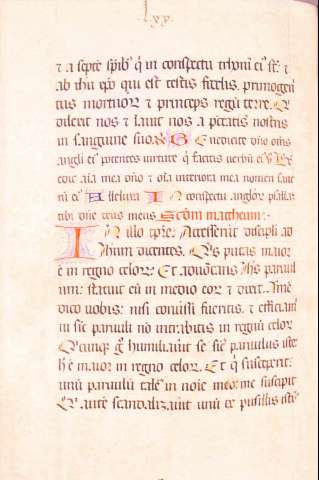 lxx.
⁊ a septē spīb; q̄ in conspectu throni eī sūt: ⁊
ab ihū xp̄o qui est testis fidelis, primogeni
tus mortuoꝝ ⁊ princeps regū terre. Q
dilexit nos ⁊ lauit nos a pctatis nostris
in sanguine suo. ℟ Benedicite dn̄o om̄s
angli eī potentes uirtute q̄ facitis uerbū eī ℣ Be
dic aīa mea dn̄o ⁊ oīa interiora mea nomen sanc
tū eī Alleluia In conspectu angloꝝ psallā
tibi dn̄e deus meus Scd̄m matheum:
In illo tp̄re: Accesserūt discipli ad
ihesum dicentes. Quis putas maior
ē in regno celoꝝ: Et aduocans ihs paruul
um: statuit eū in medio eoꝝ ⁊ dixit. Amē
dico uobis: nisi conuersi fueritis, ⁊ efficiam
ni sic paruuli nō intrabitis in regnū celoꝝ
Quicunq; gͦ humiliauit se sic paruulus iste:
hͥ ē maior in regno celoꝝ. Et q̄ susceperit:
unū paruulū talē in noīe meo: me suscipit
Qͥ autē scandalizauit unū ex pusillis istͥ